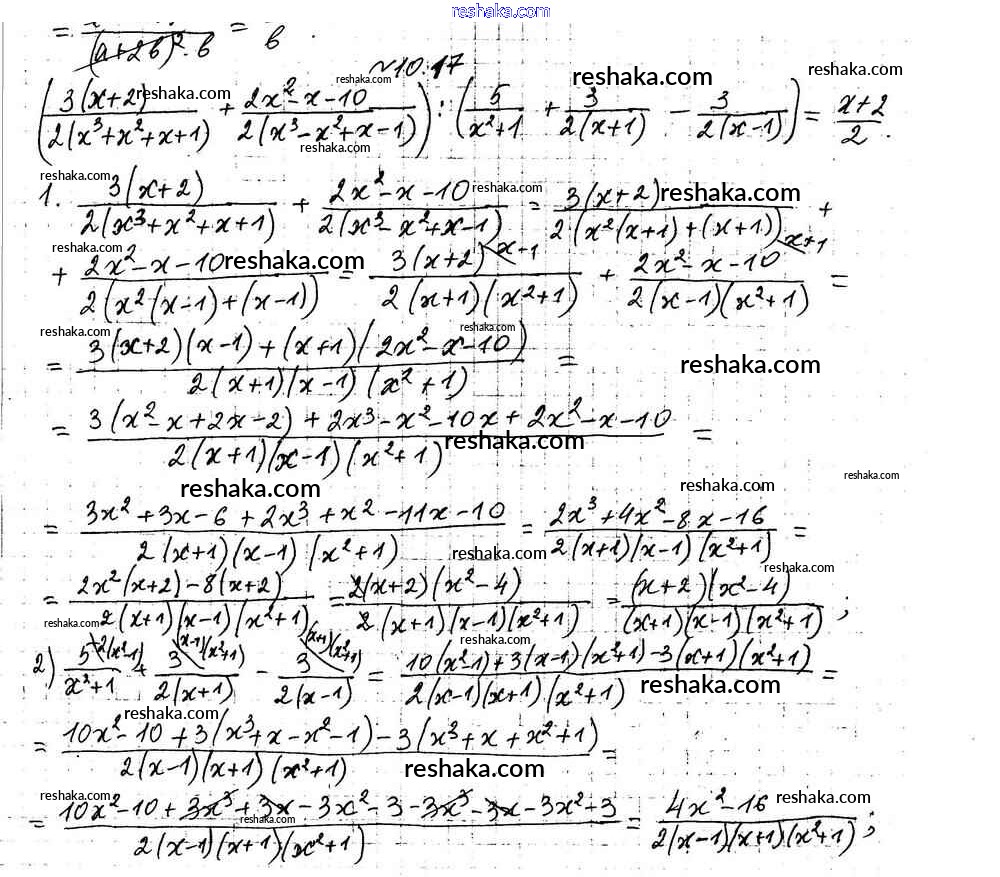 reshaka.com
= (a+2b)²·b = b .
№10.17
(3(x+2)/2(x³+x²+x+1) + 2x²-x-10/2(x³-x²+x-1)) : (5/x²+1 + 3/2(x+1) - 3/2(x-1)) = x+2/2.
1. 3(x+2)/2(x³+x²+x+1) + 2x²-x-10/2(x³-x²+x-1) = 3(x+2)/2(x²(x+1)+(x+1)) +
+ 2x²-x-10/2(x²(x-1)+(x-1)) = 3(x+2) x-1/2(x+1)(x²+1) + 2x²-x-10 x+1/2(x-1)(x²+1) =
= 3(x+2)(x-1)+(x+1)(2x²-x-10)/2(x+1)(x-1)(x²+1) =
= 3(x²-x+2x-2)+2x³-x²-10x+2x²-x-10/2(x+1)(x-1)(x²+1) =
= 3x²+3x-6+2x³+x²-11x-10/2(x+1)(x-1)(x²+1) = 2x³+4x²-8x-16/2(x+1)(x-1)(x²+1) =
= 2x²(x+2)-8(x+2)/2(x+1)(x-1)(x²+1) = 2(x+2)(x²-4)/2(x+1)(x-1)(x²+1) = (x+2)(x²-4)/(x+1)(x-1)(x²+1) ;
2) 5 2(x²-1)/x²+1 + 3 (x-1)(x²+1)/2(x+1) - 3 (x+1)(x²+1)/2(x-1) = 10(x²-1)+3(x-1)(x²+1)-3(x+1)(x²+1)/2(x-1)(x+1)(x²+1) =
= 10x²-10+3(x³+x-x²-1)-3(x³+x+x²+1)/2(x-1)(x+1)(x²+1) =
= 10x²-10+3x³+3x-3x²-3-3x³-3x-3x²+3/2(x-1)(x+1)(x²+1) = 4x²-16/2(x-1)(x+1)(x²+1) ;